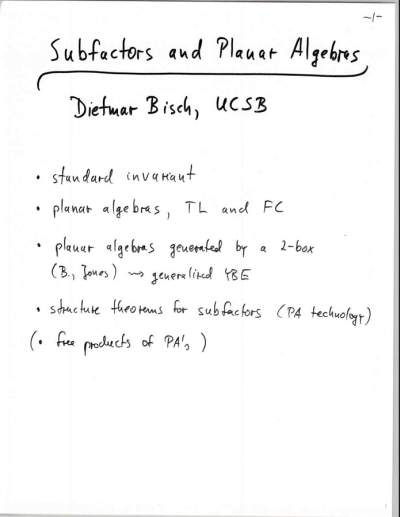 -1-
Subfactors and Planar Algebras
Dietmar Bisch, UCSB
• standard invariant
• planar algebras, TL and FC
• planar algebras generated by a 2-box
(B., Jones) ⇝ generalized YBE
• structure theorems for subfactors (PA technology)
(• free products of PA's)